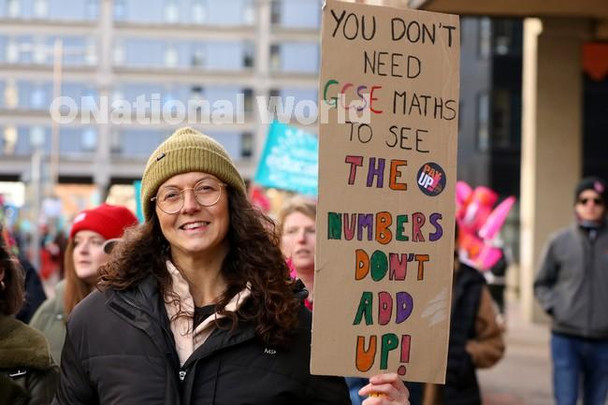 ©National World
YOU DON'T
NEED
GCSE MATHS
TO SEE
THE
PAY
UP!
NUMBERS
DON'T
ADD
UP!